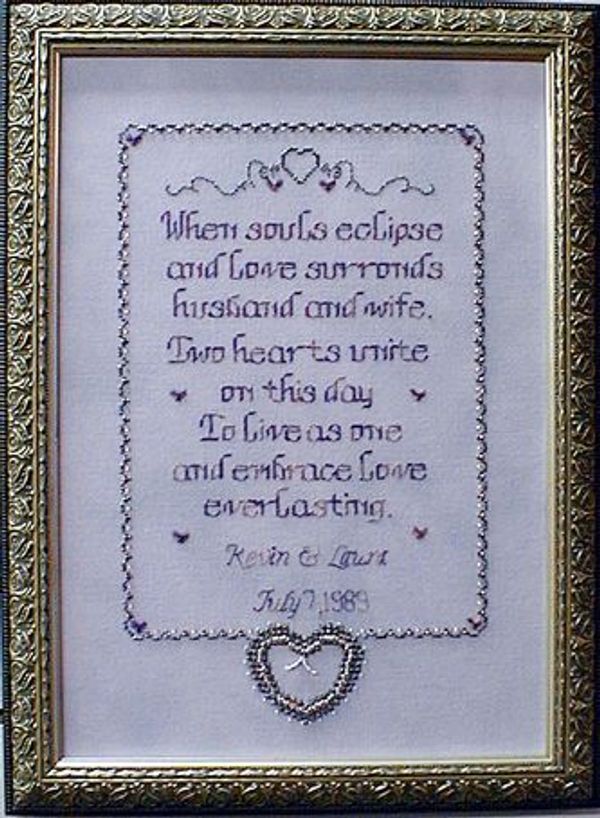 When souls eclipse
and love surronds
husband and wife.
Two hearts unite
on this day
To live as one
and embrace love
everlasting.
Kevin & Laura
July 7, 1989